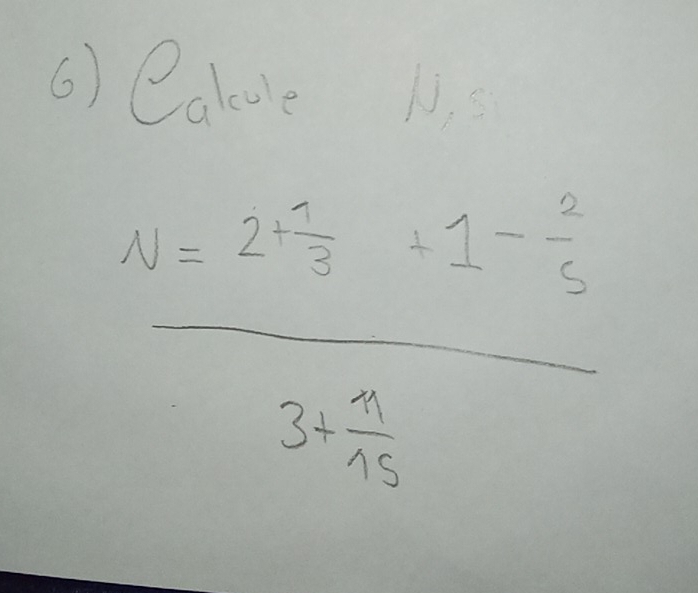 6) Calcule N, si
N = 2 + 1/3 + 1 - 2/5
3 + 11/15